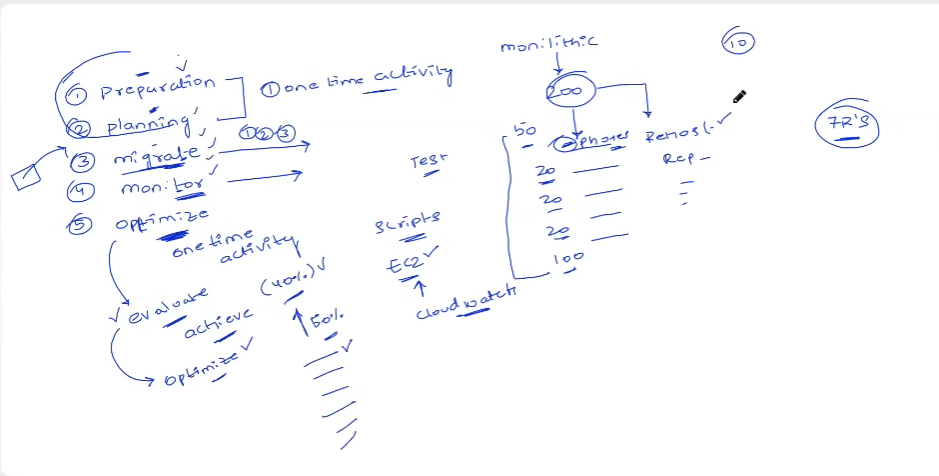 ① preparation
① one time activity
② planning
③ migrate
①②③
④ monitor
⑤ optimize
one time
activity
evaluate
achieve
(40%)
50%
optimize
Test
scripts
EC2
cloudwatch
monilithic
200
50
phases
20
20
20
100
Rep
10
7R'S